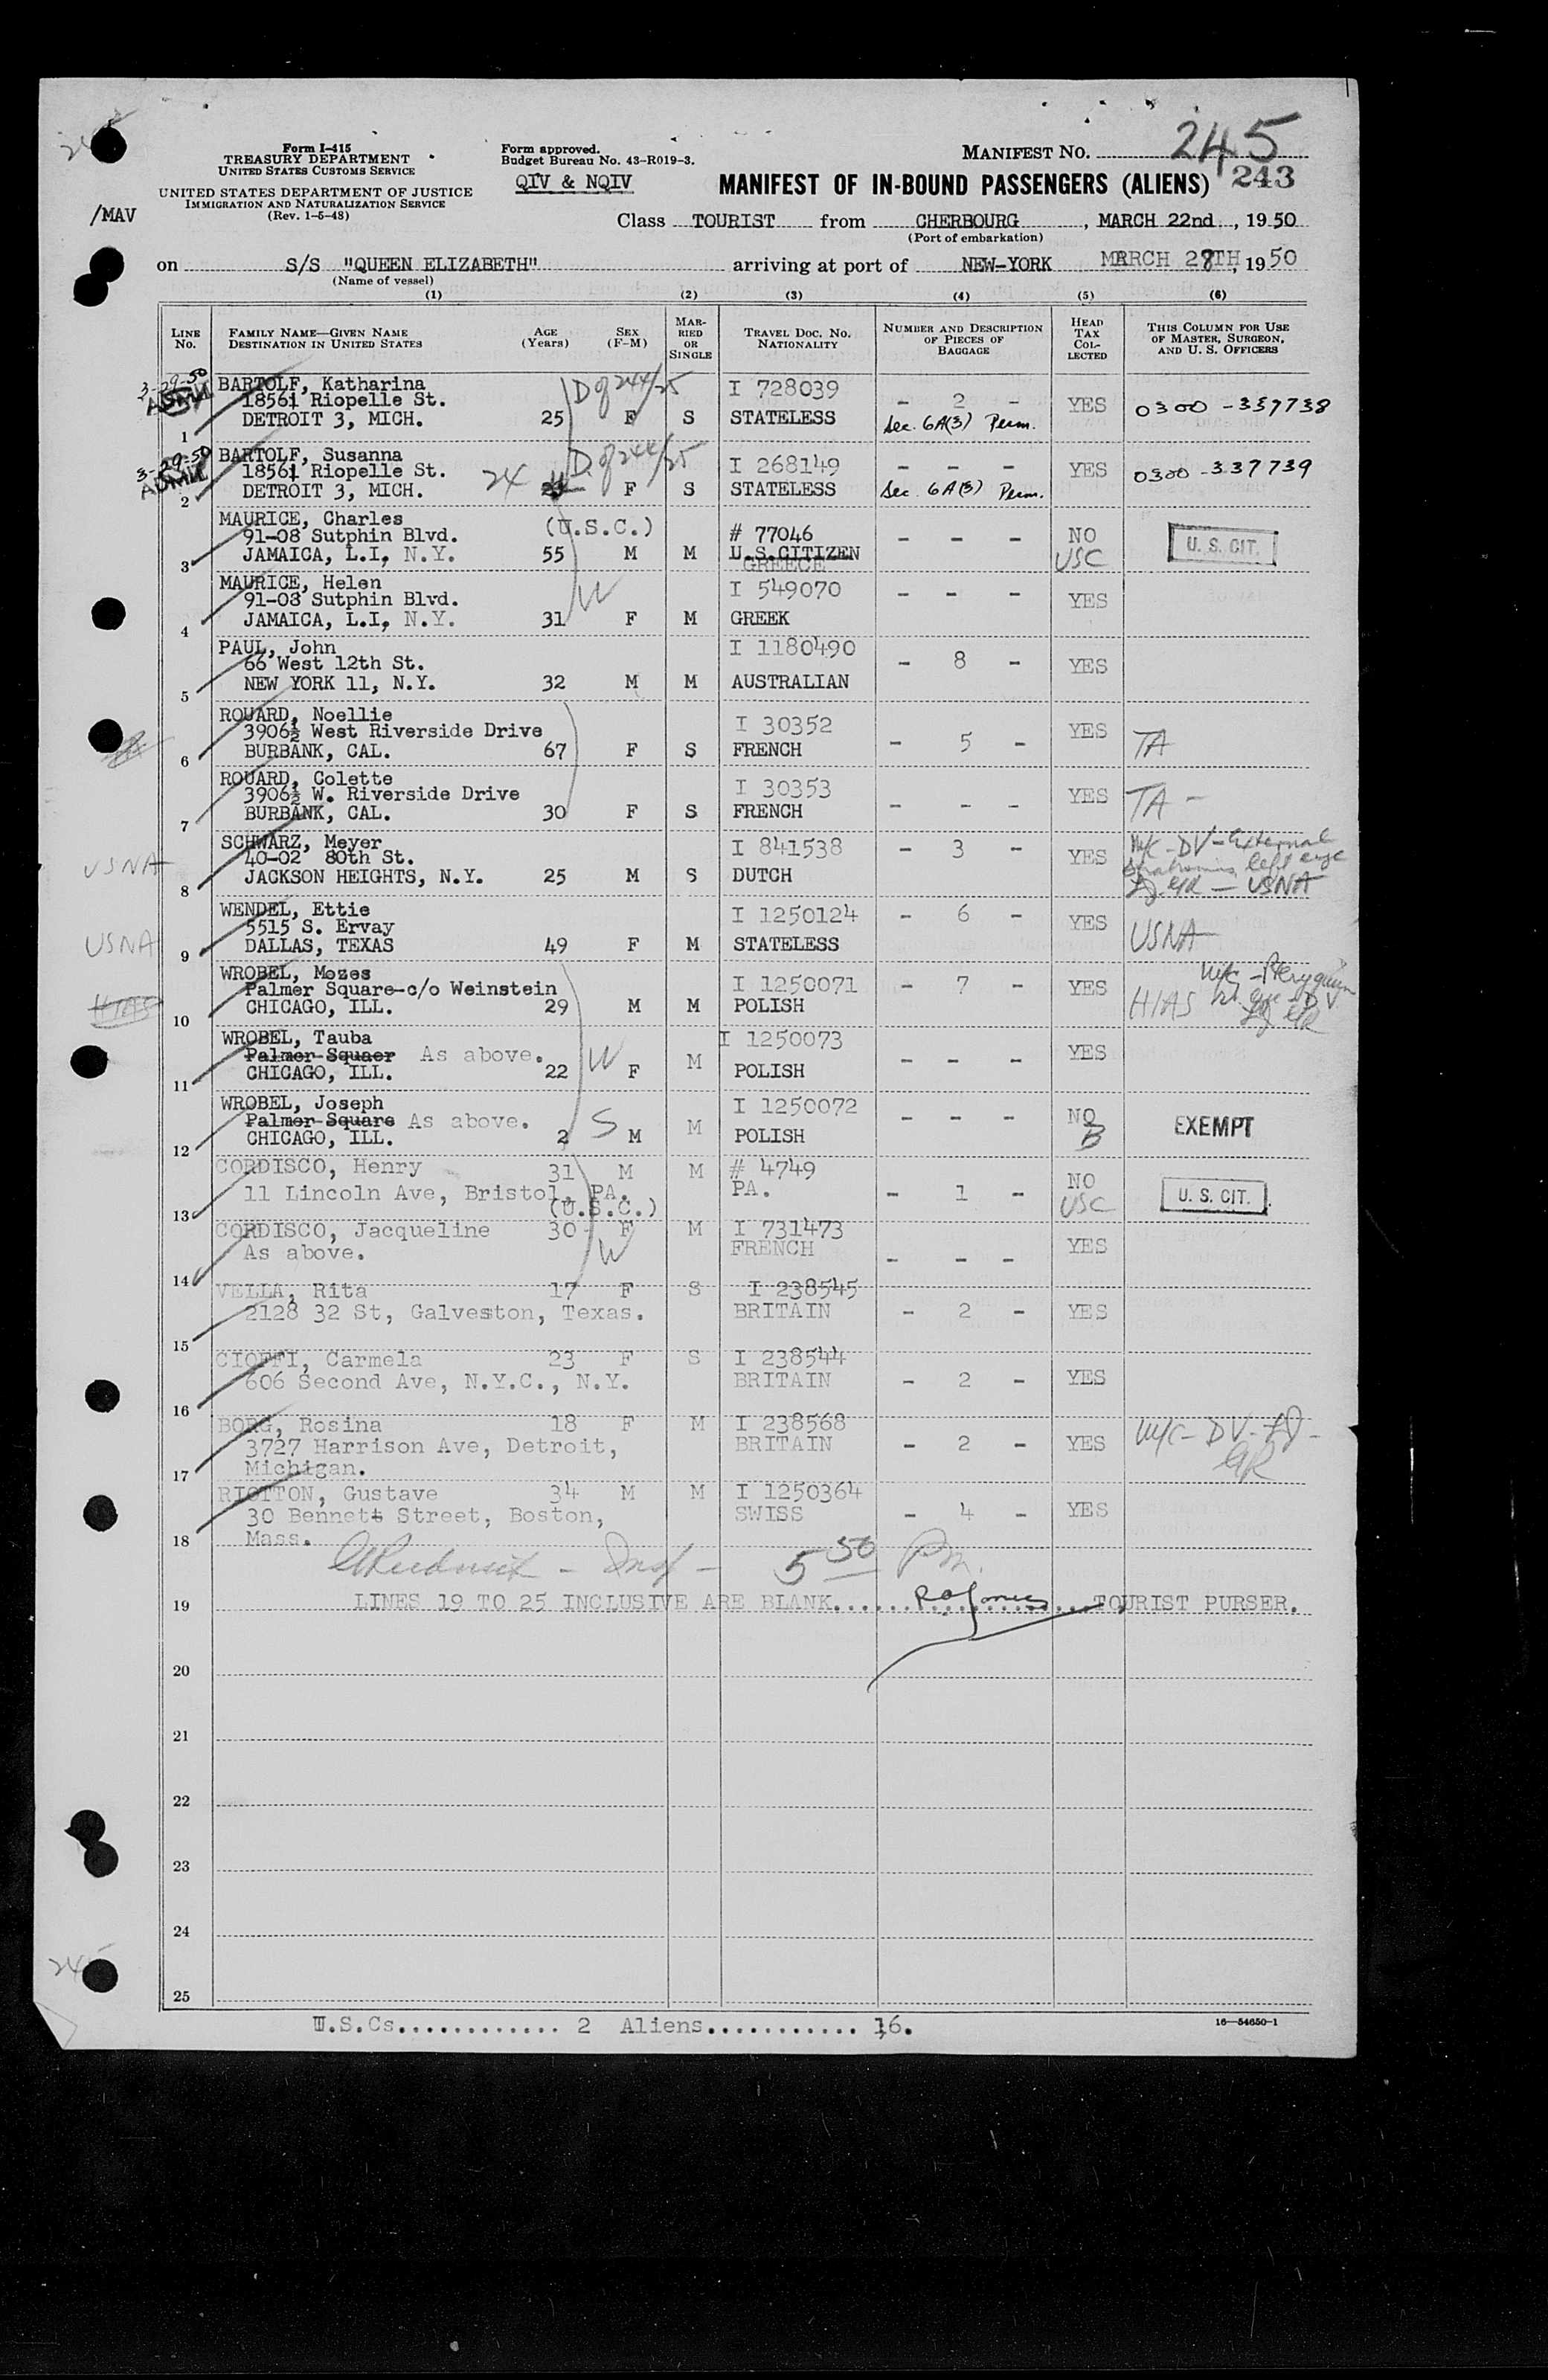 245
Form I-415
TREASURY DEPARTMENT
UNITED STATES CUSTOMS SERVICE
UNITED STATES DEPARTMENT OF JUSTICE
IMMIGRATION AND NATURALIZATION SERVICE
(Rev. 1-5-48)
/MAV
Form approved.
Budget Bureau No. 43-R019-3.
QIV & NQIV
MANIFEST NO. 245
MANIFEST OF IN-BOUND PASSENGERS (ALIENS) 243
Class TOURIST from CHERBOURG, MARCH 22nd, 1950
(Port of embarkation)
on S/S "QUEEN ELIZABETH" arriving at port of NEW-YORK MARCH 28TH, 1950
(Name of vessel)
(1) (2) (3) (4) (5) (6)
LINE No.
FAMILY NAME—GIVEN NAME
DESTINATION IN UNITED STATES
AGE (Years)
SEX (F-M)
MARRIED OR SINGLE
TRAVEL DOC. NO. NATIONALITY
NUMBER AND DESCRIPTION OF PIECES OF BAGGAGE
HEAD TAX COLLECTED
THIS COLUMN FOR USE OF MASTER, SURGEON, AND U. S. OFFICERS
3-29-50 BARTOLF, Katharina D of 244/25 I 728039
ADMIT 18561 Riopelle St. - 2 - YES 0300-337738
1 DETROIT 3, MICH. 25 F S STATELESS Sec. 6A(3) Perm.
3-29-50 BARTOLF, Susanna D. of 244/25 I 268149
ADMIT 18561 Riopelle St. - - - YES 0300-337739
2 DETROIT 3, MICH. 24 F S STATELESS Sec. 6A(3) Perm.
MAURICE, Charles (U.S.C.) # 77046
91-08 Sutphin Blvd. - - - NO U. S. CIT.
3 JAMAICA, L.I, N.Y. 55 M M U.S.CITIZEN USC
GREECE
MAURICE, Helen W I 549070
91-08 Sutphin Blvd. - - - YES
4 JAMAICA, L.I, N.Y. 31 F M GREEK
PAUL, John I 1180490
66 West 12th St. - 8 - YES
5 NEW YORK 11, N.Y. 32 M M AUSTRALIAN
ROUARD, Noellie I 30352
3906½ West Riverside Drive - 5 - YES TA
6 BURBANK, CAL. 67 F S FRENCH
ROUARD, Colette I 30353
3906½ W. Riverside Drive - - - YES TA -
7 BURBANK, CAL. 30 F S FRENCH
USNA SCHWARZ, Meyer I 841538 M/C - DV - External
40-02 80th St. - 3 - YES left eye
8 JACKSON HEIGHTS, N.Y. 25 M S DUTCH GR - USNA
WENDEL, Ettie I 1250124
5515 S. Ervay - 6 - YES USNA
USNA 9 DALLAS, TEXAS 49 F M STATELESS
WROBEL, Mozes I 1250071 M/C - Pterygium
HIAS Palmer Square-c/o Weinstein - 7 - YES HIAS rt. eye - DV
10 CHICAGO, ILL. 29 M M POLISH GR
WROBEL, Tauba W I 1250073
Palmer Squaer As above. - - - YES
11 CHICAGO, ILL. 22 F M POLISH
WROBEL, Joseph S I 1250072
Palmer Square As above. - - - NO EXEMPT
12 CHICAGO, ILL. 2 M M POLISH B
CORDISCO, Henry 31 M M # 4749
11 Lincoln Ave, Bristol, PA. PA. - 1 - NO U. S. CIT.
13 (U.S.C.) USC
CORDISCO, Jacqueline 30 F M I 731473
As above. W FRENCH - - - YES
14
VELLA, Rita 17 F S I 238545
2128 32 St, Galveston, Texas. BRITAIN - 2 - YES
15
CIOFFI, Carmela 23 F S I 238544
606 Second Ave, N.Y.C., N.Y. BRITAIN - 2 - YES
16
BORG, Rosina 18 F M I 238568
3727 Harrison Ave, Detroit, BRITAIN - 2 - YES M/C - DV -
17 Michigan. GR
RIOTTON, Gustave 34 M M I 1250364
30 Bennett Street, Boston, SWISS - 4 - YES
18 Mass.
Insp - 5 50 Pm.
19 LINES 19 TO 25 INCLUSIVE ARE BLANK. TOURIST PURSER.
20
21
22
23
24
25
U.S.Cs............ 2 Aliens........... 16.
16—54650-1